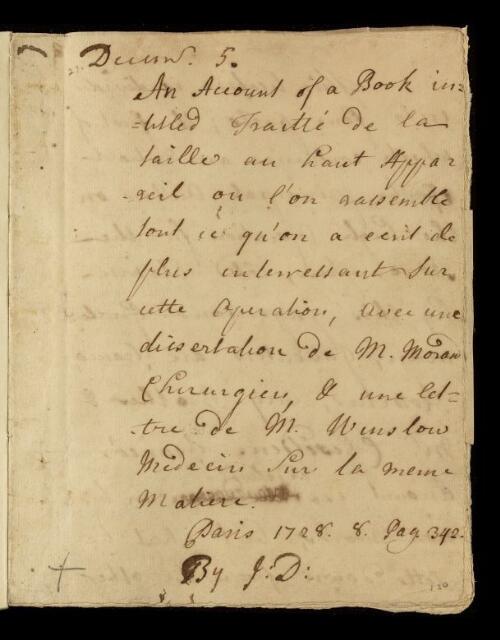 Decem.r 5.
An Account of a Book in=
=titled Traitté de la
taille au haut Appar
-reil ou l'on rassemble
tout ce qu'on a ecrit de
plus interressant sur
cette Operation, avec une
dissertation de M. Moran
Chirurgien, & une let=
-tre de M. Winslow
Medecin sur la meme
Matiere.
Paris 1728. 8. Pag 342.
By J: D: